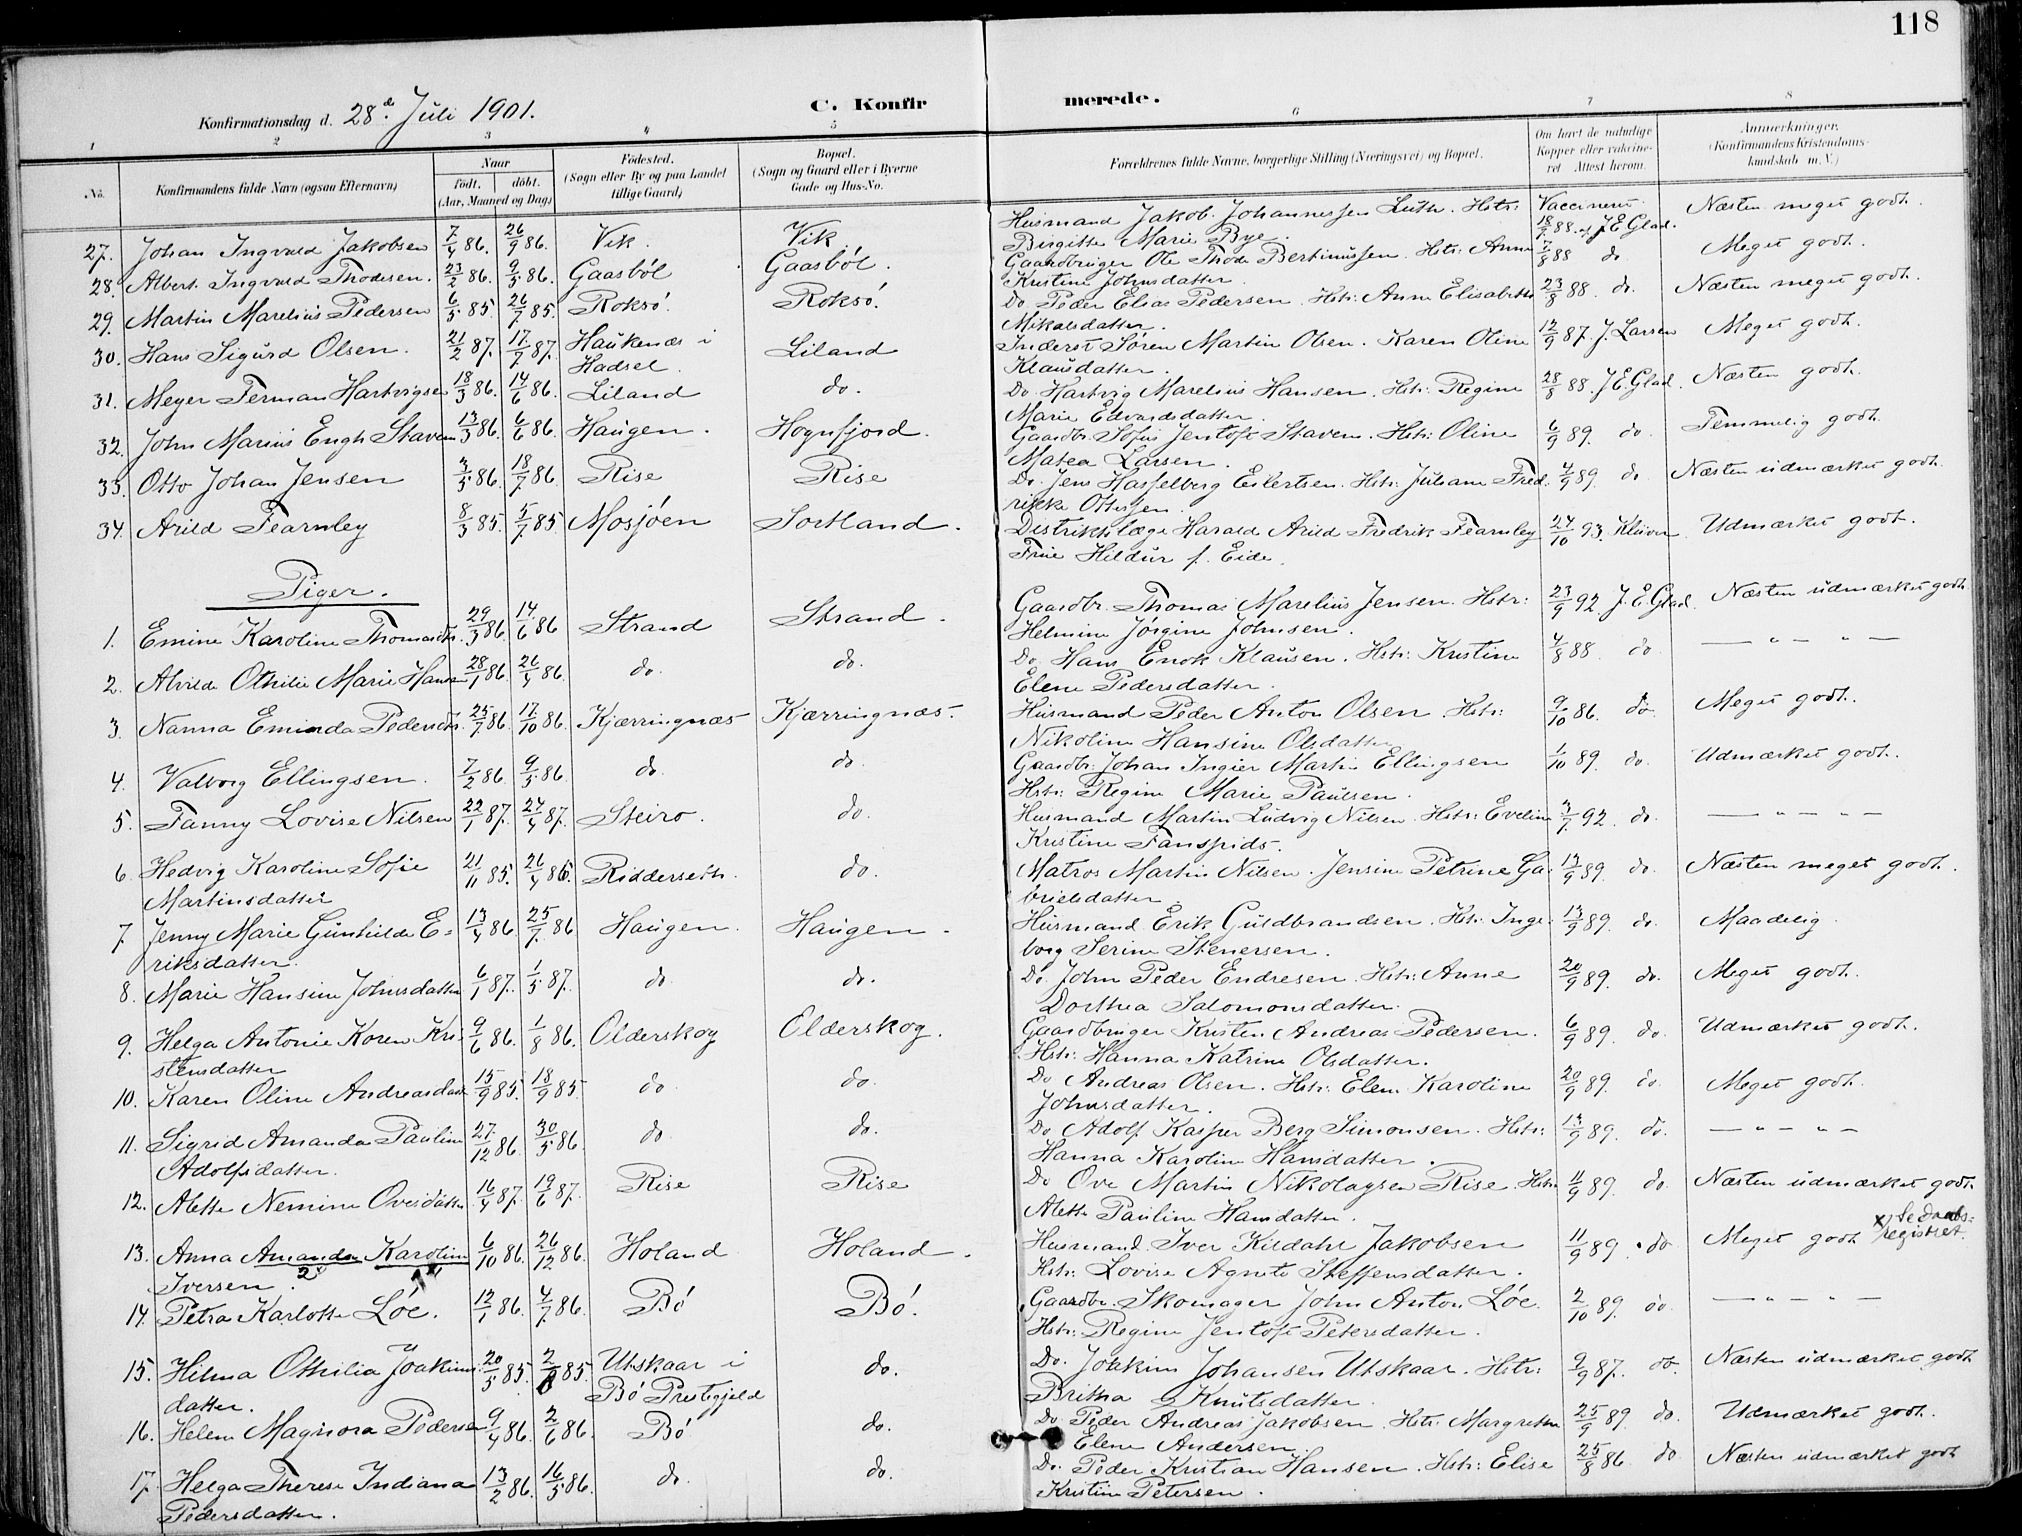 118
Konfirmationsdag d. 28de Juli 1901.
C. Konfir merede.
1 2 3 4 5 6 7 8
No.
Konfirmandens fulde Navn (ogsaa Efternavn)
Naar
født. døbt.
(Aar, Maaned og Dag)
Fødested.
(Sogn eller By og paa Landet
tillige Gaard)
Bopæl.
(Sogn og Gaard eller i Byerne
Gade og Hus-No.
Forældrenes fulde Navne, borgerlige Stilling (Næringsvei) og Bopæl.
Om havt de naturlige
Kopper eller vaccine-
ret Attest herom.
Anmærkninger.
(Konfirmandens Kristendoms-
kundskab m. V.)
27. Johan Ingvald Jakobsen 7/4 86. 26/9 86. Vik. Vik Husmand Jakob Johannessen Luth. Hstr: Vaccineret Næsten meget godt.
Birgitte Marie Bye. 18/7 88. af J E Glad.
28. Albert Ingvald Thodesen. 23/2 86. 9/5 86. Gaasbøl Gaasbøl. Gaardbruger Ole Thode Bertinussen. Hstr: Anne 7/8 88 do Meget godt.
Kristine Johnsdatter
29. Martin Marelius Pedersen 6/5 85. 26/7 85. Roksø. Roksø. Do Peder Elias Pedersen. Hstr: Anne Elisabeth 23/8 88. do. Næsten meget godt.
Mikalsdatter.
30. Hans Sigurd Olsen. 21/2 87. 17/7 87. Haukenæs i Liland Inderst Søren Martin Olsen. Karen Oline 12/9 87. J. Larsen Meget godt.
Hadsel. Klausdatter.
31. Meyer Ferman Hartvigsen 18/3 86. 14/6 86. Liland do. Do Hartvig Marelius Hansen. Hstr: Regine 28/8 88. J E Glad. Næsten godt.
Marie Edvardsdatter.
32. John Marius Engh Staven 13/3 86. 6/6 86. Haugen. Hognfjord. Gaardbr. Sofus Jentoft Staven. Hstr: Oline 6/9 89. do Temmelig godt.
Matea Larsen.
33. Otto Johan Jensen 3/5 86. 18/7 86. Rise Rise Do. Jens Hasselberg Eilertsen. Hstr: Juliane Fred- 4/9 89. do Næsten udmærket godt.
rikke Ottesen.
34. Arild Fearnley 8/3 85. 5/7 85. Mosjøen Sortland. Distriktslæge Harald Arild Fredrik Fearnley 24/10 93. Kluver Udmærket godt.
Frue Hildur f. Eide.
Piger.
1. Emine Karoline Thomasdtr. 29/3 86. 14/6 86 Strand Strand. Gaardbr. Thomas Marelius Jensen. Hstr: 23/9 92. J. E. Glad. Næsten udmærket godt
Helmine Jørgine Johnsen.
2. Alvilde Othilie Marie Hansen 28/1 86. 26/4 86. do. do. Do. Hans Enok Klausen. Hstr: Kristine 4/8 88. do — " — " —
Elene Pedersdatter.
3. Nanna Eminda Pedersdtr. 25/7 86. 17/10 86. Kjærringnæs Kjærringnæs. Husmand Peder Anton Olsen. Hstr: 9/10 86. do Meget godt.
Nikoline Hansine Olsdatter
4. Valborg Ellingsen. 7/2 86. 9/5 86. do. do. Gaardbr: Johan Ingier Martin Ellingsen 1/10 89. do. Udmærket godt.
Hstr: Regine Marie Paulsen.
5. Fanny Lovise Nilsen 22/1 87. 24/4 87. Steiro. do. Husmand Martin Ludvig Nilsen. Hstr: Eveline 3/7 92. do. — " — " —
Kristine
6. Hedvig Karoline Sofie 21/11 85. 26/4 86. Riddersett. do. Matros Martin Nilsen. Jensine Petrine Ga- 13/9 89. do. Næsten meget godt.
Martinsdatter brielsdatter.
7. Jenny Marie Gunhilde E- 13/4 86. 25/7. 86 Haugen. Haugen. Husmand Erik Guldbrandsen. Hstr: Inge- 13/9 89. do. Maadelig.
riksdatter. borg Serine Stenersen.
8. Marie Hansine Johnsdatter 6/1 87. 1/5 87. do do. Do John Peder Endresen. Hstr: Anne 20/9 89. do. Meget godt.
Dorthea Salomonsdatter.
9. Helga Antonie Koren Kri- 9/6 86. 1/8 86. Olderskog Olderskog. Gaardbruger Kristen Andreas Pedersen. 6/9 89. do. Udmærket godt.
stensdatter Hstr: Hanna Katrine Olsdatter.
10. Karen Oline Andreasdatt. 15/9 85. 18/9 85. do do. Do Andreas Olsen. Hstr: Elen Karoline 20/9 89. do. Meget godt.
Johnsdatter.
11. Sigrid Amanda Pauline 27/12 86. 30/5 86. do. do. Do Adolf Kasper Berg Simonsen. Hstr: 13/9 89. do. — " — " —
Adolfsdatter. Hanna Karoline Hansdatter.
12. Alette Nemine Ovesdatter 16/4 87. 19/6 87. Rise Rise Do Ove Martin Nikolaysen Rise. Hstr: 11/9 89. do. Næsten udmærket godt.
Alette Pauline Hansdatter.
13. Anna Amanda Karoline 6/10 86. 26/12 86. Holand Holand. Husmand Iver Kildahl Jakobsen 11/9 89. do Meget godt x) Se Daabs-
Iversen. 2x 1x Hstr: Lovise Agnete Steffensdatter. registret.
14. Petra Karlotte Løe. 12/1 86. 4/7 86. Bø Bø. Gaardbr. Skomager John Anton Løe. 2/10 89. do. — " — " —
Hstr: Regine Jentoft Petersdatter.
15. Hilma Othilia Joakims- 20/5 85. 2/8 85. Utskaar i do. Do. Joakim Johansen Utskaar. Hstr: 9/9 87. do. Næsten udmærket godt
datter. Bø Prestegjeld Britha Knutsdatter.
16. Helene Magnora Pedersen 9/4 86. 2/6 86. Bø do. Do. Peder Andreas Jakobsen. Hstr: Margrethe 25/9 89. do. Udmærket godt.
Elene Andersen.
17. Helga Therese Indiana 13/2 86. 16/5 86. do. do. Do. Peder Kristian Hansen. Hstr: Elise 25/8 86. do Næsten udmærket godt
Pedersdatter. Kristine Petersen.